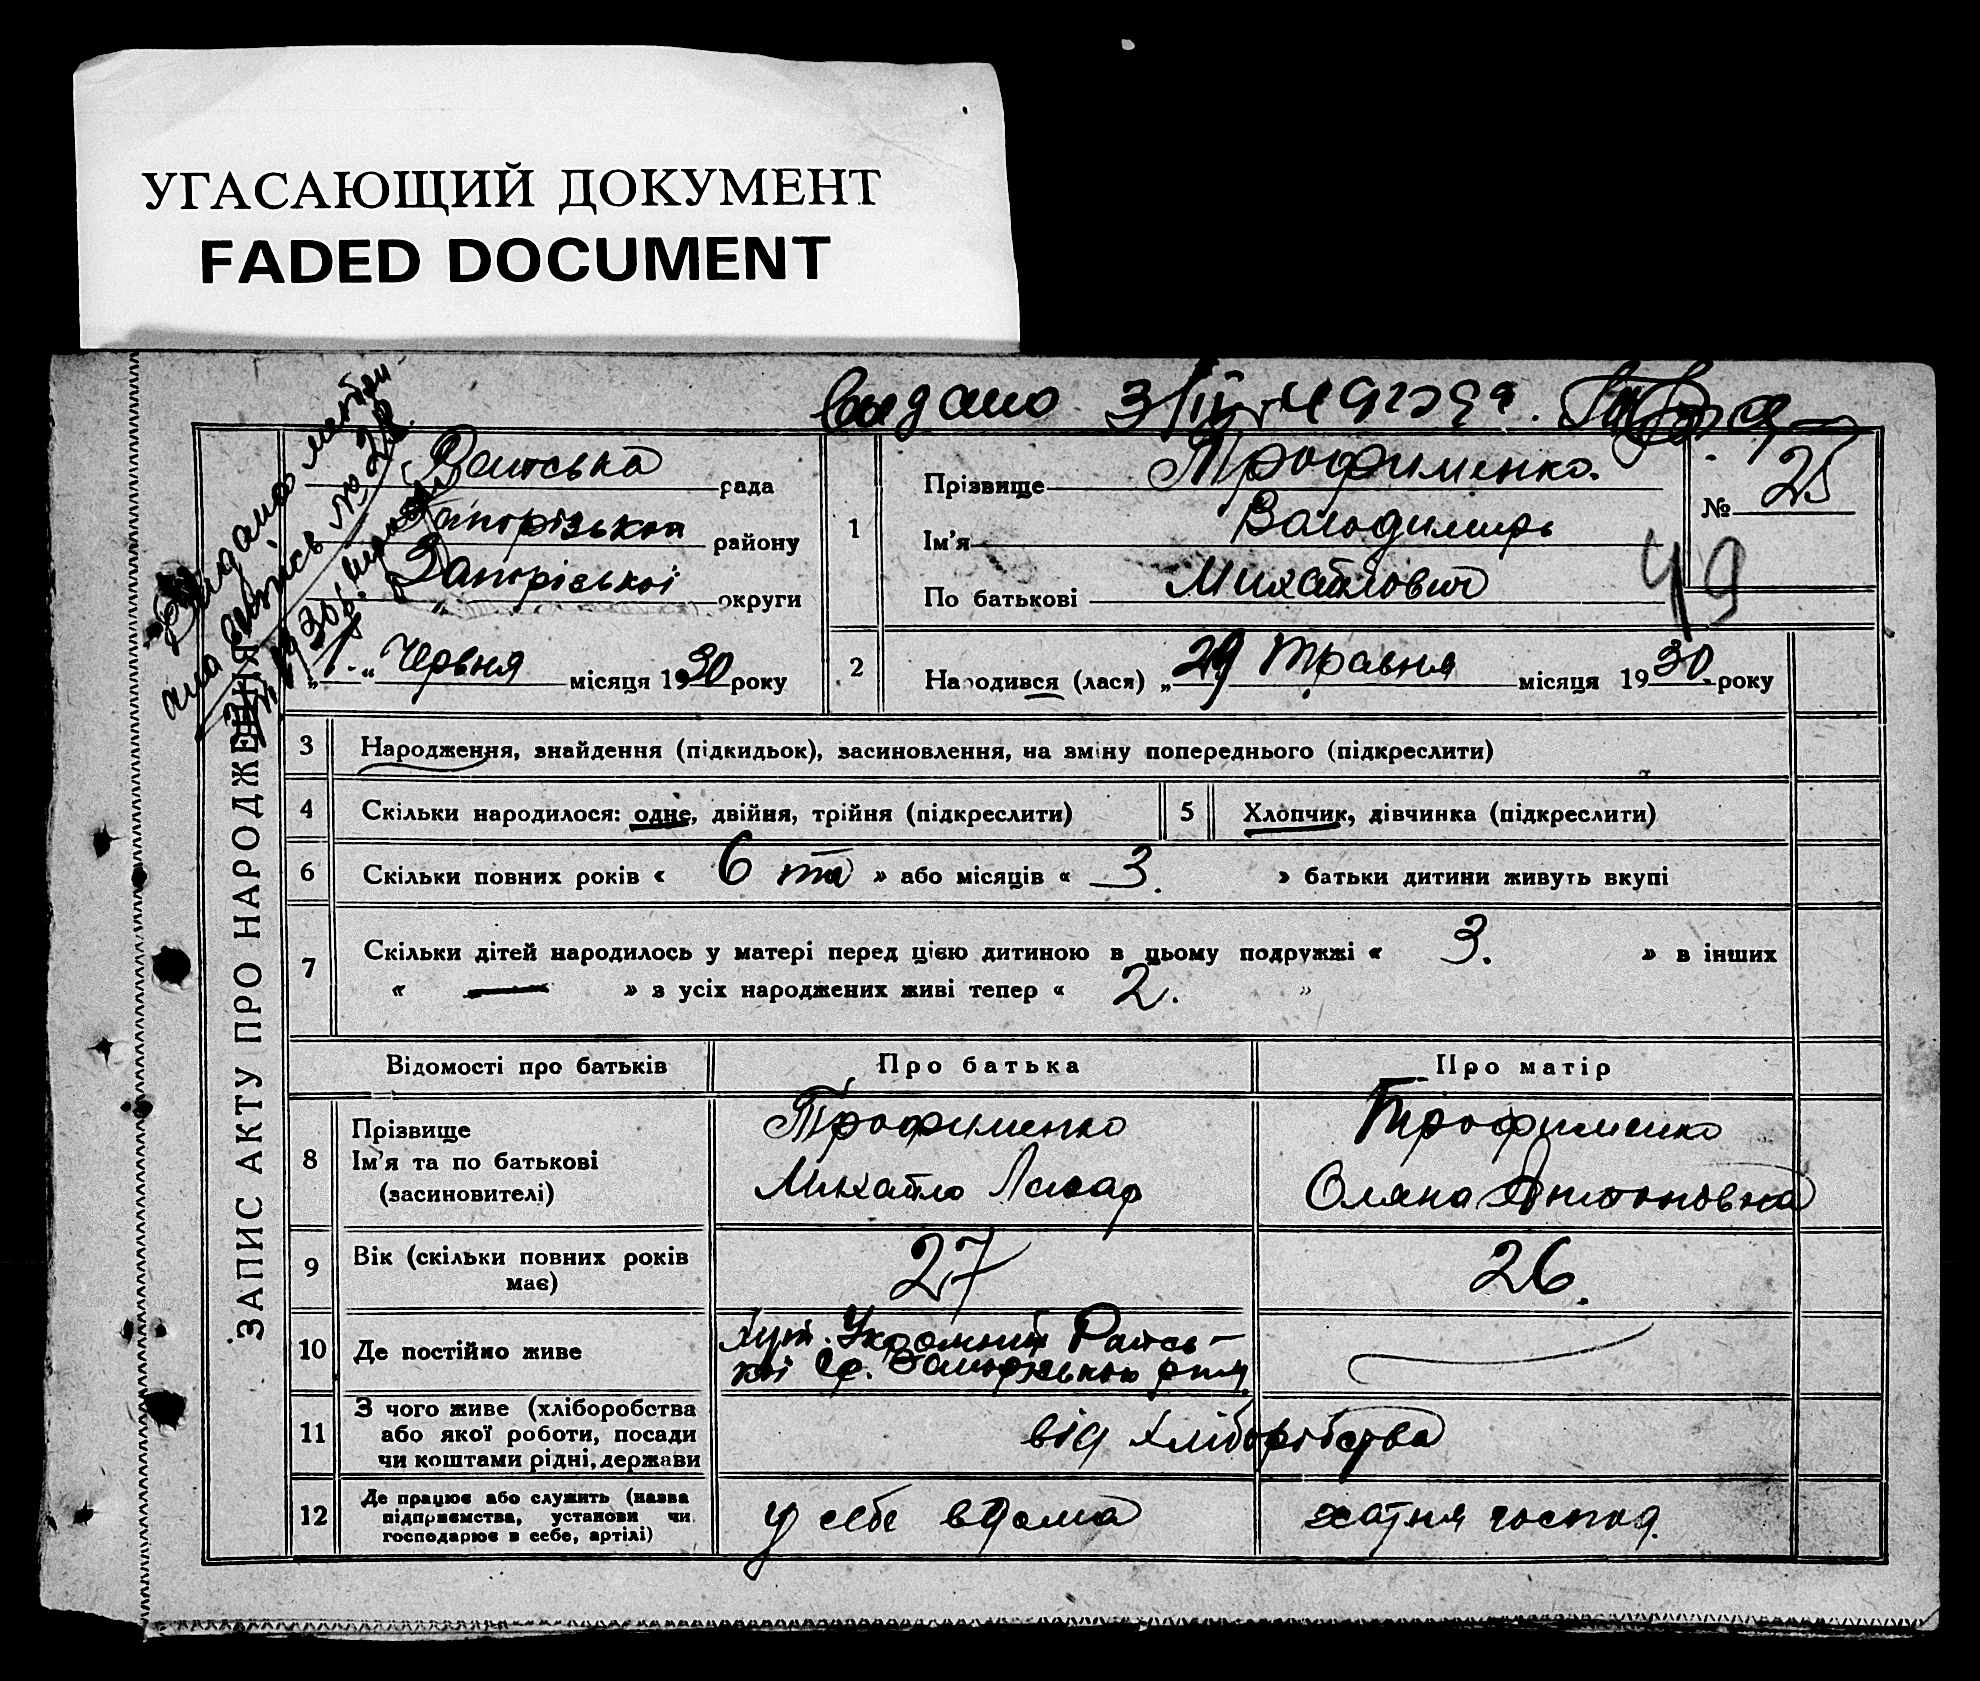 УГАСАЮЩИЙ ДОКУМЕНТ
FADED DOCUMENT
видано
ЗАПИС АКТУ ПРО НАРОДЖЕННЯ
рада
району
Запорізької округи
„1.“ Червня місяця 1930 року
1
Прізвище Трофименко.
Ім'я Володимирь
По батькові Михайлович
№ 25
49
2
Народився (лася) „29 Травня місяця 1930 року
3 Народження, знайдення (підкидьок), засиновлення, на зміну попереднього (підкреслити)
4 Скільки народилося: одне, двійня, трійня (підкреслити)
5 Хлопчик, дівчинка (підкреслити)
6 Скільки повних років « 6 та » або місяців « 3. » батьки дитини живуть вкупі
7 Скільки дітей народилось у матері перед цією дитиною в цьому подружжі « 3. » в інших
« — » з усіх народжених живі тепер « 2. »
Відомості про батьків Про батька Про матір
8 Прізвище Трофименко Трофименко
Ім'я та по батькові Михайло Оляна Антоновна
(засиновителі)
9 Вік (скільки повних років має) 27 26.
10 Де постійно живе хут.
11 З чого живе (хліборобства
або якої роботи, посади
чи коштами рідні, держави
від хліборобства
12 Де працює або служить (назва
підприємства, установи чи
господарює в себе, артілі)
у себе вдома хатня господ.